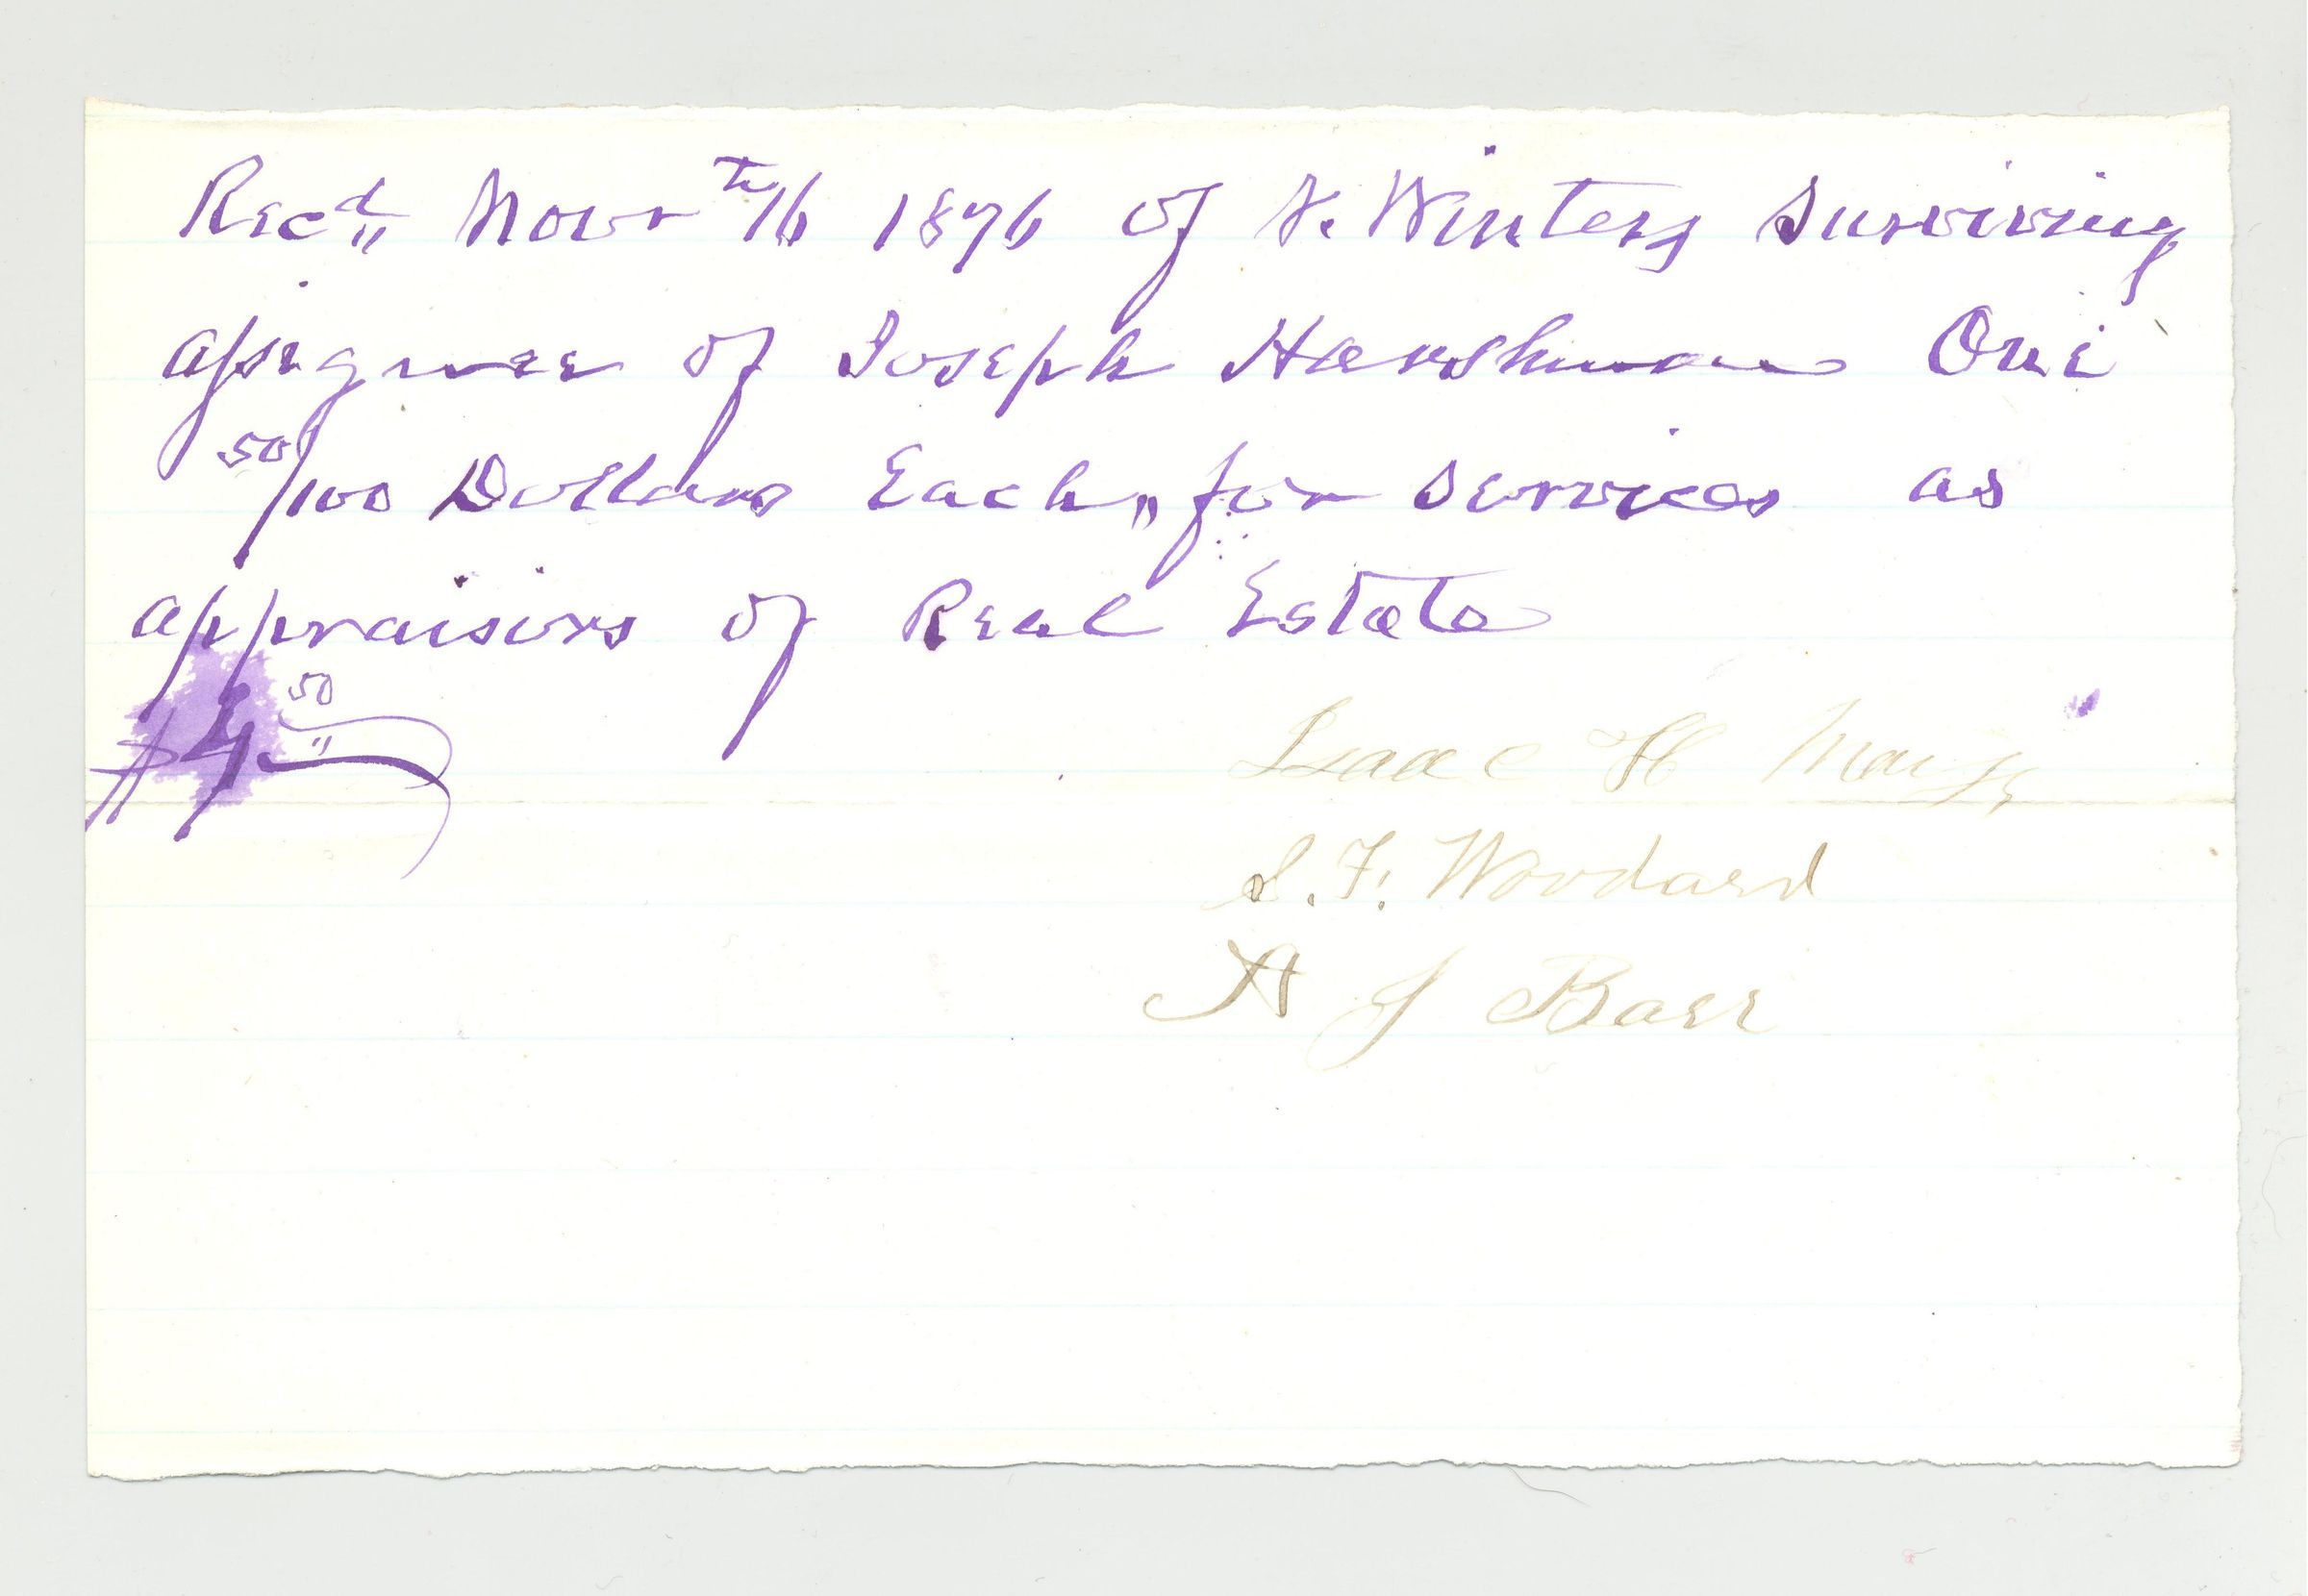 Recd Novr 16th 1876 of V. Winters Surviving
assignee of Joseph Harshman One
50/100 Dollars Each, for services as
appraisors of Real Estate
$4.50
Isaac H
S. F. Woodard
A J Barr